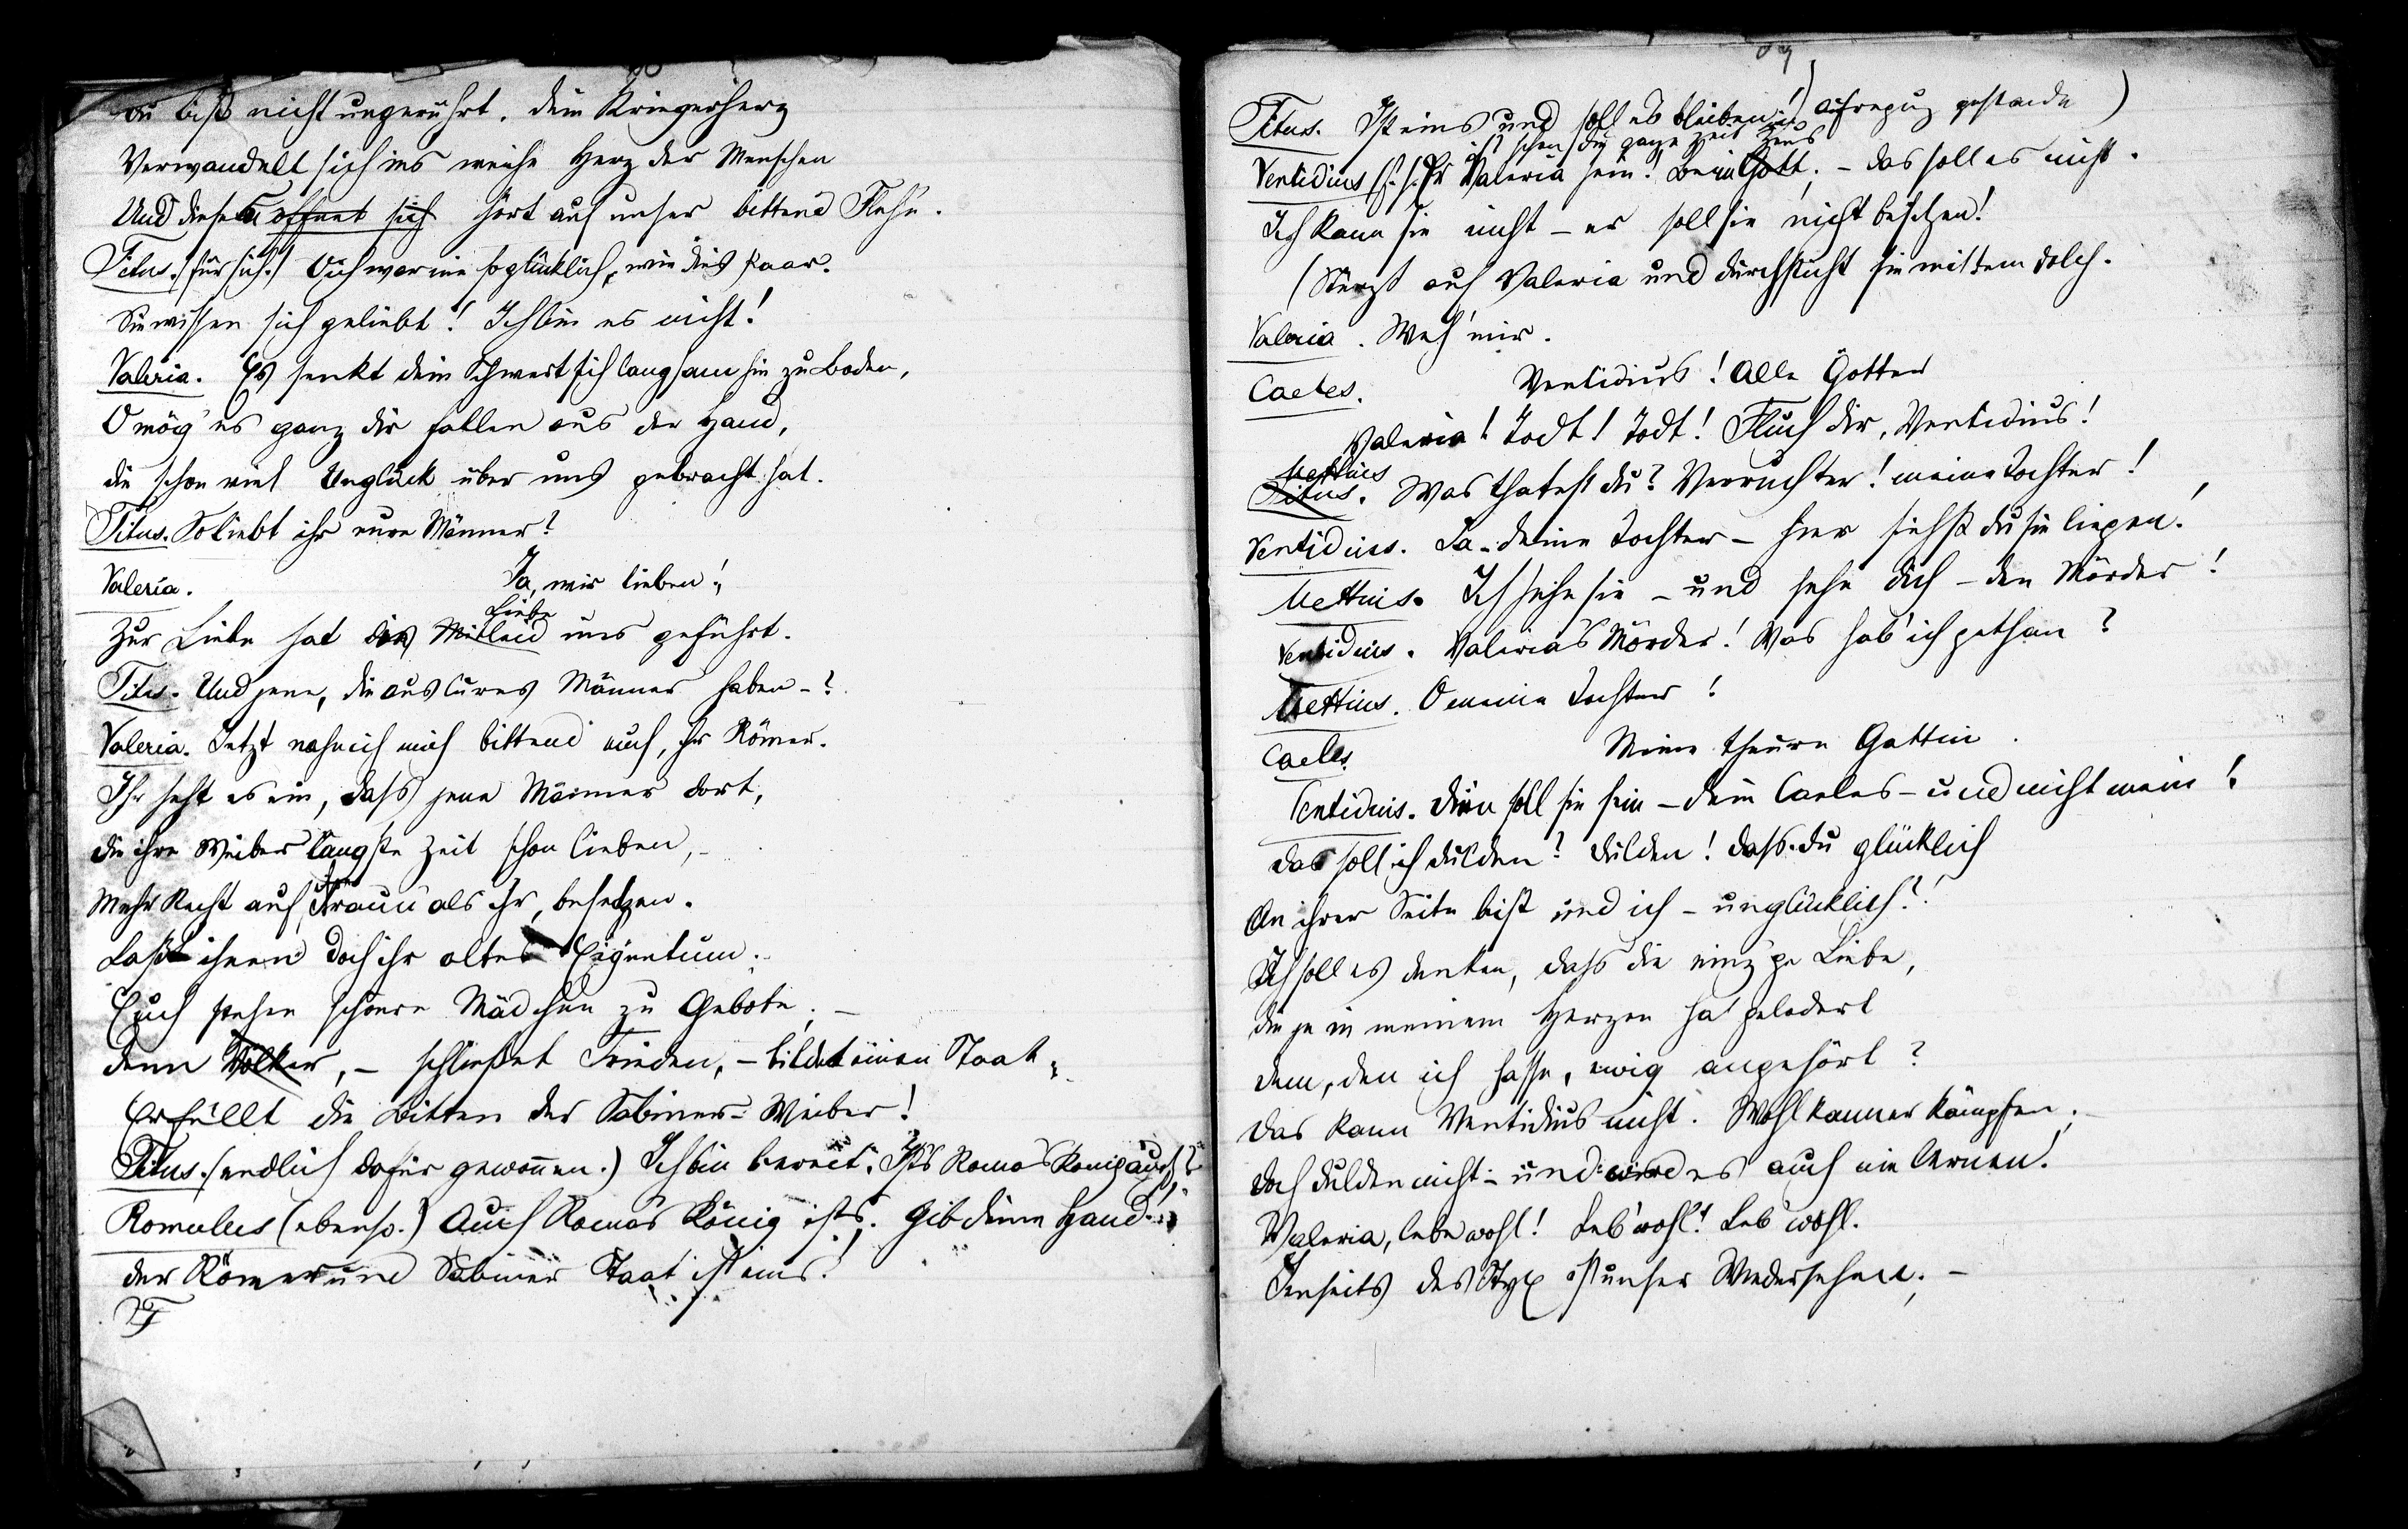 Du bist nicht ungerührt. Dein Kriegerherz
Verwandelt sich ins weiche Herz der Menschen
Und dieses öffnet sich hört auf unser bittend Flehn.
Titus. (für sich.) O ich war nie so glücklich, wie dies Paar.
Sie wissen sich geliebt! Ich bin es nicht!
Valeria. Es senkt dein Schwert sich langsam hin zu Boden,
O mög' es ganz dir fallen aus der Hand,
die schon viel Unglück über uns gebracht hat.
Titus. So liebt ihr eure Männer?
Valeria. Ja, wir lieben!
Liebe
Zur Liebe hat Mitleid uns geführt.
Titus. Und jene, die aus Cures Männer haben-?
Valeria. Jetzt nah' ich mich bittend euch, ihr Römer.
Ihr seht es ein, dass jene Männer dort,
die ihre Weiber längste Zeit schon lieben,-
Mehr Recht auf Frau'n als ihr, besetzen.
Laßt ihnen doch ihr altes Eigentum.
Euch stehen schönre Mädchen zu Gebote; -
denn Völker, - schließet Frieden, - bildet einen Staat
Erfüllt die Bitten der Sabiner-Weiber!
Titus. (endlich dafür gewonnen.) Ich bin bereit. Ist's Roma's König auch?
Romulus (ebenso.) Auch Roma's König ist's. Gib deine Hand
der Römer und Sabiner Staat ist eins!
Titus. Ist eins und soll es bleiben!
ist schon die ganze Zeit aufregung gestanden)
Zeus
Ventidius Valeria sein! Beim Gott; - das soll es nicht.
Ich kann sie nicht - er soll sie nicht besitzen!
(Stürzt auf Valeria und durchsticht sie mit dem Dolch.
Valeria. Weh' mir.
Caeles. Ventidius! Alle Götter
Valeria! Todt! Todt! Fluch dir, Ventidius!
Mettius
Titus. Was thatest du? Verruchter! meine Tochter!
Ventidius. Ja - deine Tochter - hier siehst du sie liegen!
Mettius. Ich sehe sie - und sehe dich - den Mörder!
Ventidius. Valeria's Mörder! Was hab' ich gethan?
Mettius. O meine Tochter!
Caeles. Meine theure Gattin.
Ventidius. Dein soll sie sein - dein Caeles - und nicht mein!
Das soll ich dulden? Dulden! Dass du glücklich
An ihrer Seite bist und ich - unglücklich?!
Ich soll es denken, dass die einz'ge Liebe,
die je in meinem Herzen hat gelodert
dem, den ich hasse, ewig angehört?
Das kann Ventidius nicht. Wohl kann er kämpfen;
doch dulden nicht - und wird es auch nie lernen!
Valeria, lebe wohl! Leb' wohl! Leb' wohl.
Jenseits des Styx ist unser Wiedersehen. -